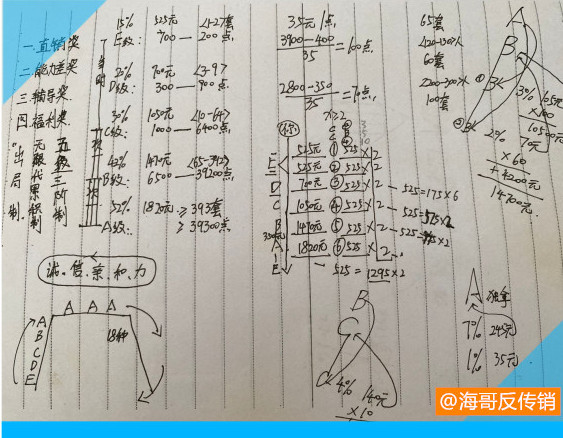 一.直销奖
二.能力差奖
三.辅导奖
四.福利奖
五级三阶制
出局制
无限代累积制
15% 525元 <1-2>套
E级: 700 — 200点
20% 700元 <3-9>
D级: 300 — 900点
30% 1050元 <10-64>
C级: 1000 — 6400点
42% 1470元 <65-392>
B级: 6500 — 39200点
52% 1820元 ≥393套
A级: ≥39300点
35元1点
3900-400
35
=100点
2800-350
35
=70点
525元 ① 525×2
525元 ② 525×2
D 700元 ③ 525×2 - 525=175×6
C 1050元 ④ 525×2
B 1470元 ⑤ 525×2
A 1820元 ⑥ 525×2
E — 525 = 1295×2
65套
60套
100套
A
B
3% 105元
×100
10500元
2% 70元
×60
+4200元
14700元
诚.信.亲.和.力
A A A A
B
C
D
E
18种
B
C
C 4% 140元
×10
A 独拿
7% 245元
1% 35元
@海哥反传销